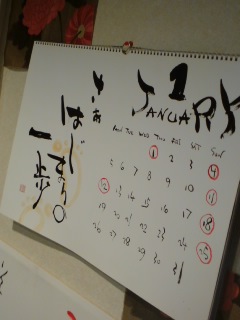 さあ
はじまりの
一歩
1
JANUARY
MON TUE WED THU FRI SAT SUN
1 2 3 4
5 6 7 8 9 10 11
12 13 14 15 16 17 18
19 20 21 22 23 24 25
26 27 28 29 30 31